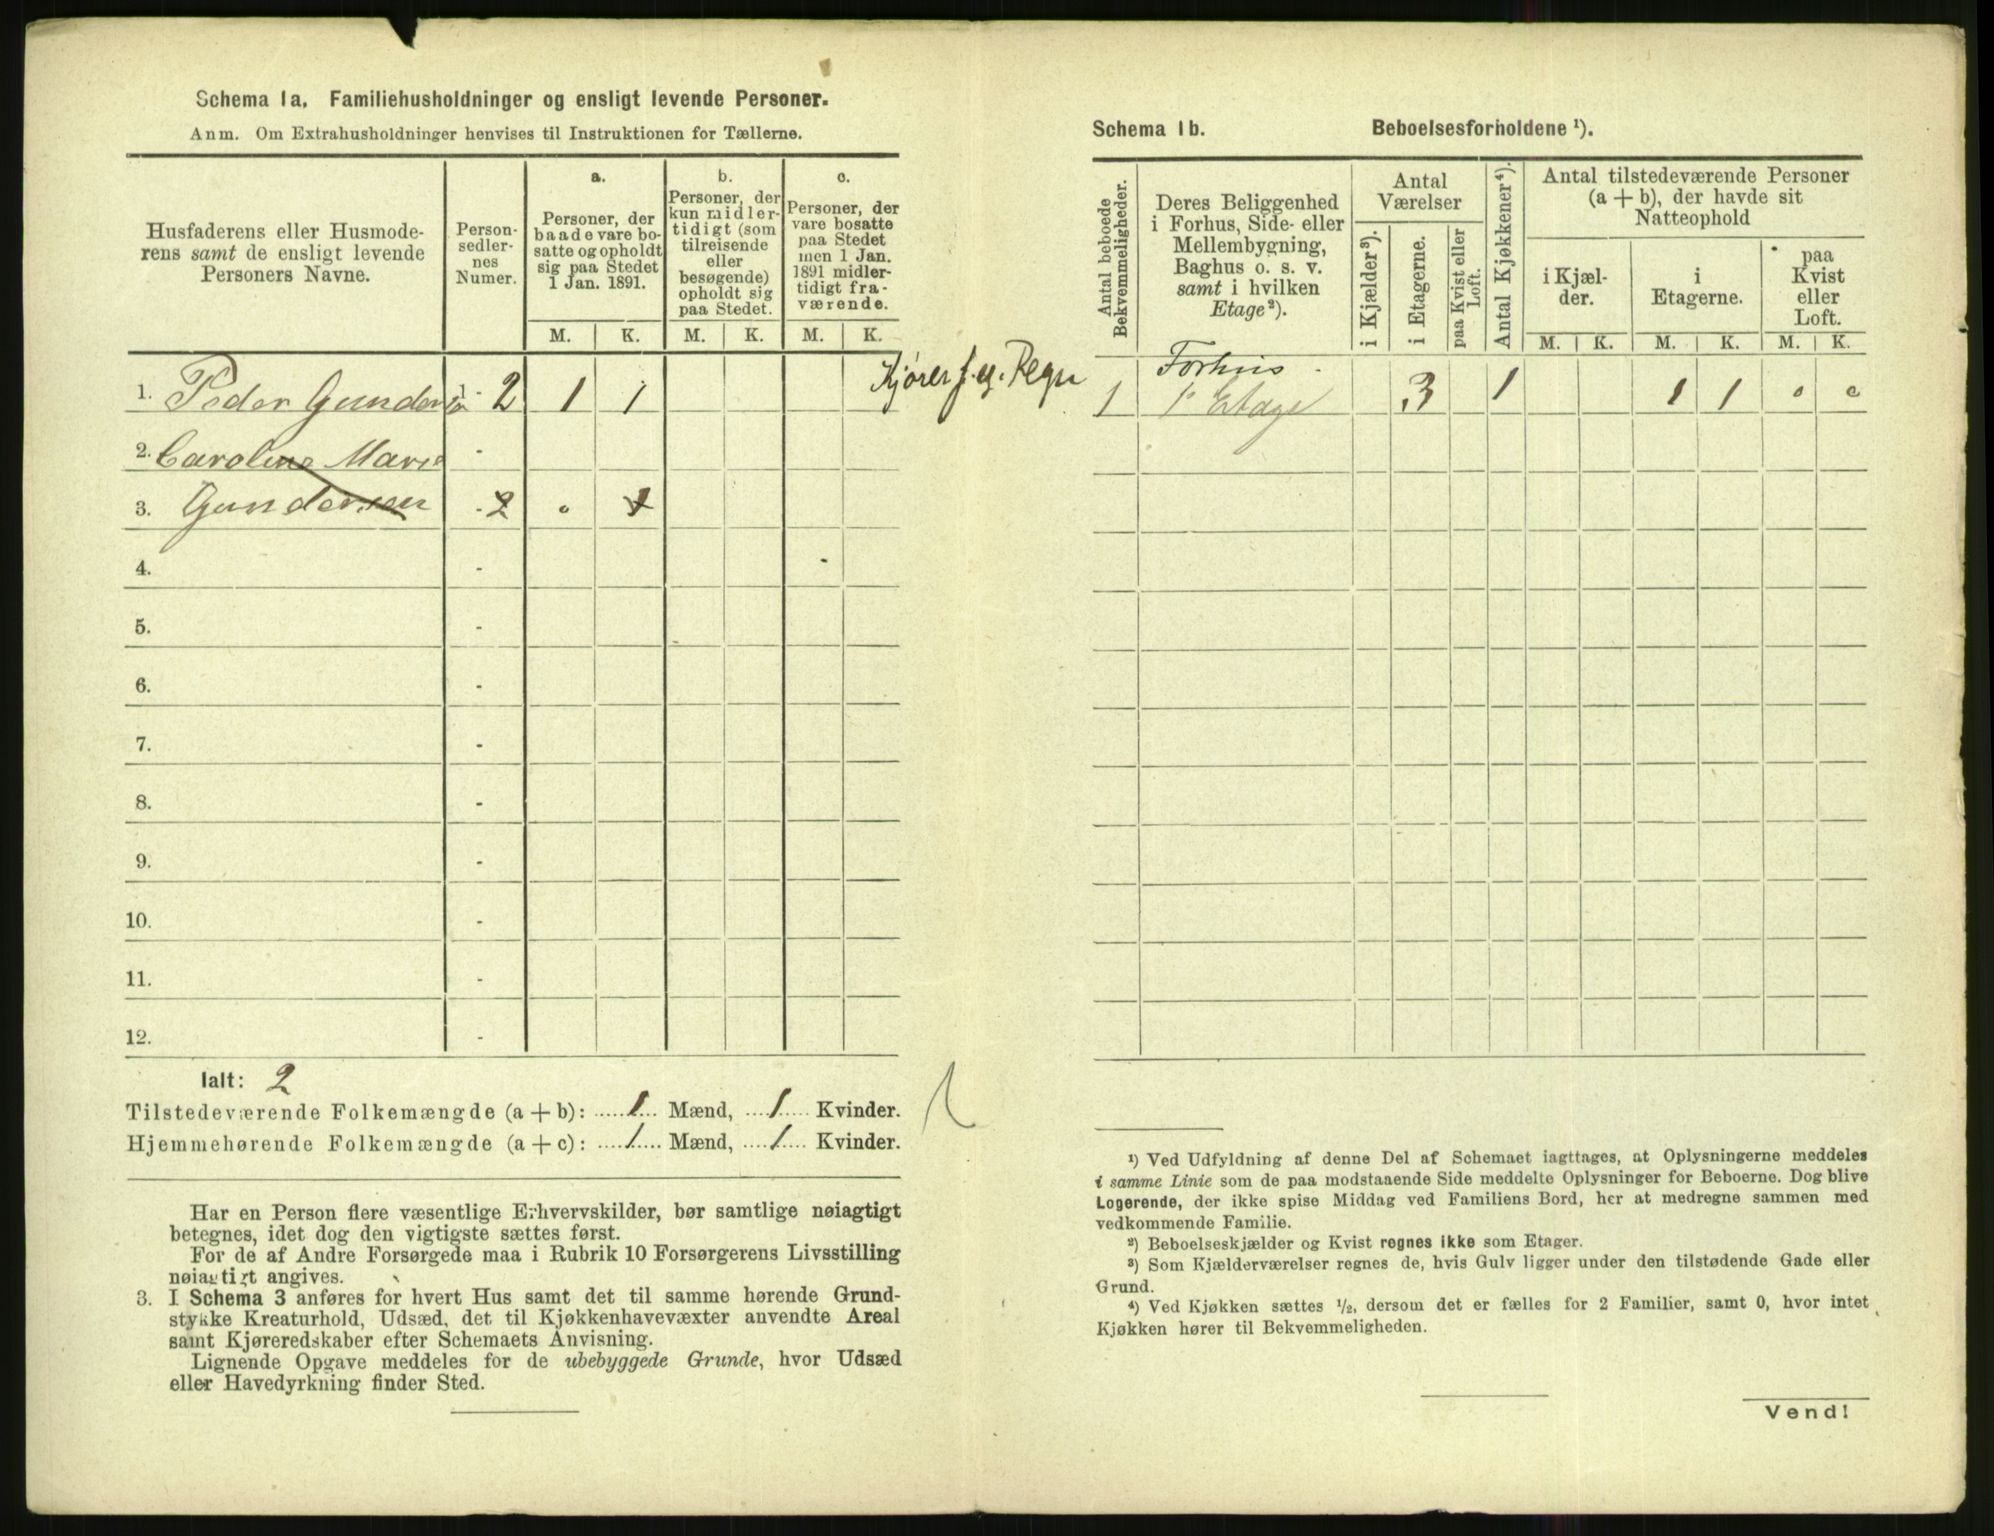 Schema 1a. Familiehusholdninger og ensligt levende Personer.
Anm. Om Extrahusholdninger henvises til Instruktionen for Tællerne.
Husfaderens eller Husmode-
rens samt de ensligt levende
Personers Navne.
Person-
sedler-
nes
Numer.
a.
Personer, der
baade vare bo-
satte og opholdt
sig paa Stedet
1 Jan. 1891.
b.
Personer, der
kun midler-
tidigt (som
tilreisende
eller
besøgende)
opholdt sig
paa Stedet.
c.
Personer, der
vare bosatte
paa Stedet
men 1 Jan.
1891 midler-
tidigt fra-
værende.
M. K. M. K. M. K.
1. Peder Gundersen 1 - 2 1 1 Kjører f. eg. Regn
2. Caroline Marie -
3. Gundersen - 2 0 1
4. -
5. -
6. -
7. -
8. -
9. -
10. -
11. -
12. -
Ialt: 2
Tilstedeværende Folkemængde (a + b): 1 Mænd, 1 Kvinder.
Hjemmehørende Folkemængde (a + c): 1 Mænd, 1 Kvinder.
Har en Person flere væsentlige Erhvervskilder, bør samtlige nøiagtigt
betegnes, idet dog den vigtigste sættes først.
For de af Andre Forsørgede maa i Rubrik 10 Forsørgerens Livsstilling
nøiagtigt angives.
3. I Schema 3 anføres for hvert Hus samt det til samme hørende Grund-
stykke Kreaturhold, Udsæd, det til Kjøkkenhavevæxter anvendte Areal
samt Kjøreredskaber efter Schemaets Anvisning.
Lignende Opgave meddeles for de ubebyggede Grunde, hvor Udsæd
eller Havedyrkning finder Sted.
Schema 1b. Beboelsesforholdene ¹).
Antal beboede
Bekvemmeligheder.
Deres Beliggenhed
i Forhus, Side- eller
Mellembygning,
Baghus o. s. v.
samt i hvilken
Etage ²).
Antal
Værelser
i Kjælder ³).
i Etagerne.
paa Kvist eller
Loft.
Antal Kjøkkener ⁴).
Antal tilstedeværende Personer
(a + b), der havde sit
Natteophold
i Kjæl-
der.
i
Etagerne.
paa
Kvist
eller
Loft.
M. K. M. K. M. K.
Forhus
1 1ᵉ Etage 3 1 1 1 0 0
¹) Ved Udfyldning af denne Del af Schemaet iagttages, at Oplysningerne meddeles
i samme Linie som de paa modstaaende Side meddelte Oplysninger for Beboerne. Dog blive
Logerende, der ikke spise Middag ved Familiens Bord, her at medregne sammen med
vedkommende Familie.
²) Beboelseskjælder og Kvist regnes ikke som Etager.
³) Som Kjælderværelser regnes de, hvis Gulv ligger under den tilstødende Gade eller
Grund.
⁴) Ved Kjøkken sættes ½, dersom det er fælles for 2 Familier, samt 0, hvor intet
Kjøkken hører til Bekvemmeligheden.
Vend!